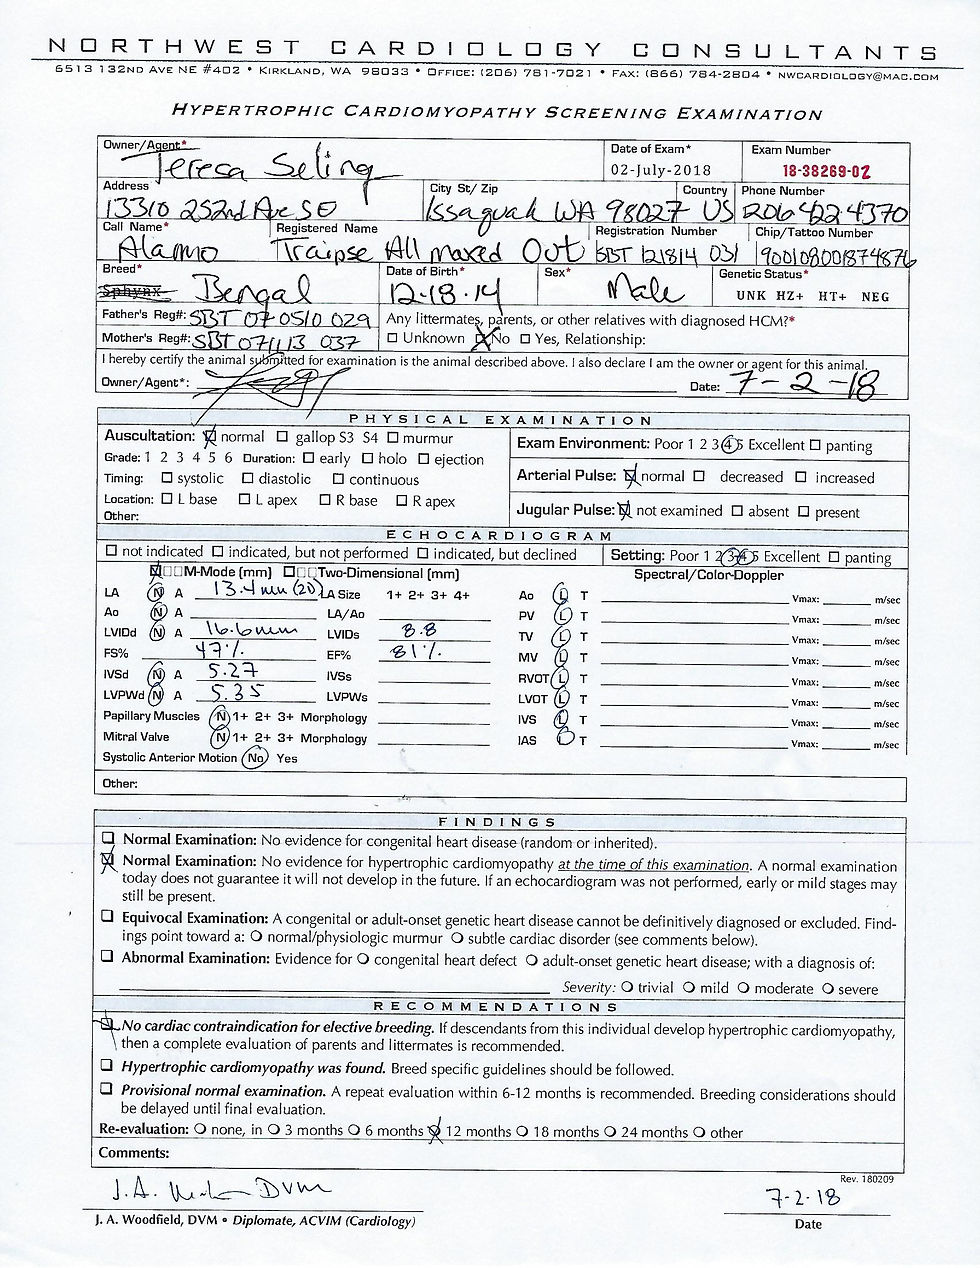 NORTHWEST CARDIOLOGY CONSULTANTS
6513 132ND AVE NE #402 • KIRKLAND, WA 98033 • OFFICE: (206) 781-7021 • FAX: (866) 784-2804 • NWCARDIOLOGY@MAC.COM
HYPERTROPHIC CARDIOMYOPATHY SCREENING EXAMINATION
Owner/Agent* Date of Exam* Exam Number
Teresa Seling 02-July-2018 18-38269-02
Address City St/ Zip Country Phone Number
13310 252nd Ave SE Issaquah WA 98027 US 206 422 4370
Call Name* Registered Name Registration Number Chip/Tattoo Number
Alamo Traipse All Maxed Out SBT 121814 031 900108001874876
Breed* Date of Birth* Sex* Genetic Status*
Sphynx Bengal 12.18.14 Male UNK HZ+ HT+ NEG
Father's Reg#: SBT 070510 029 Any littermates, parents, or other relatives with diagnosed HCM?*
Mother's Reg#: SBT 071113 037 ☐ Unknown ☒ No ☐ Yes, Relationship:
I hereby certify the animal submitted for examination is the animal described above. I also declare I am the owner or agent for this animal.
Owner/Agent*: Date: 7-2-18
PHYSICAL EXAMINATION
Auscultation: ☒ normal ☐ gallop S3 S4 ☐ murmur Exam Environment: Poor 1 2 3 4 5 Excellent ☐ panting
Grade: 1 2 3 4 5 6 Duration: ☐ early ☐ holo ☐ ejection
Timing: ☐ systolic ☐ diastolic ☐ continuous Arterial Pulse: ☒ normal ☐ decreased ☐ increased
Location: ☐ L base ☐ L apex ☐ R base ☐ R apex Jugular Pulse: ☒ not examined ☐ absent ☐ present
Other:
ECHOCARDIOGRAM
☐ not indicated ☐ indicated, but not performed ☐ indicated, but declined Setting: Poor 1 2 3 4 5 Excellent ☐ panting
☒☐☐M-Mode (mm) ☐☐☐Two-Dimensional (mm) Spectral/Color-Doppler
LA N A 13.4 mm (2D) LA Size 1+ 2+ 3+ 4+ Ao L T Vmax: m/sec
Ao N A LA/Ao PV L T Vmax: m/sec
LVIDd N A 16.6mm LVIDs 8.8 TV L T Vmax: m/sec
FS% 47% EF% 81% MV L T Vmax: m/sec
IVSd N A 5.27 IVSs RVOT L T Vmax: m/sec
LVPWd N A 5.35 LVPWs LVOT L T Vmax: m/sec
Papillary Muscles N 1+ 2+ 3+ Morphology IVS L T Vmax: m/sec
Mitral Valve N 1+ 2+ 3+ Morphology IAS L T Vmax: m/sec
Systolic Anterior Motion No Yes
Other:
FINDINGS
☐ Normal Examination: No evidence for congenital heart disease (random or inherited).
☒ Normal Examination: No evidence for hypertrophic cardiomyopathy at the time of this examination. A normal examination
today does not guarantee it will not develop in the future. If an echocardiogram was not performed, early or mild stages may
still be present.
☐ Equivocal Examination: A congenital or adult-onset genetic heart disease cannot be definitively diagnosed or excluded. Find-
ings point toward a: ○ normal/physiologic murmur ○ subtle cardiac disorder (see comments below).
☐ Abnormal Examination: Evidence for ○ congenital heart defect ○ adult-onset genetic heart disease; with a diagnosis of:
Severity: ○ trivial ○ mild ○ moderate ○ severe
RECOMMENDATIONS
☒ No cardiac contraindication for elective breeding. If descendants from this individual develop hypertrophic cardiomyopathy,
then a complete evaluation of parents and littermates is recommended.
☐ Hypertrophic cardiomyopathy was found. Breed specific guidelines should be followed.
☐ Provisional normal examination. A repeat evaluation within 6-12 months is recommended. Breeding considerations should
be delayed until final evaluation.
Re-evaluation: ○ none, in ○ 3 months ○ 6 months ☒ 12 months ○ 18 months ○ 24 months ○ other
Comments:
Rev. 180209
J. A. DVM 7-2-18
J. A. Woodfield, DVM • Diplomate, ACVIM (Cardiology) Date